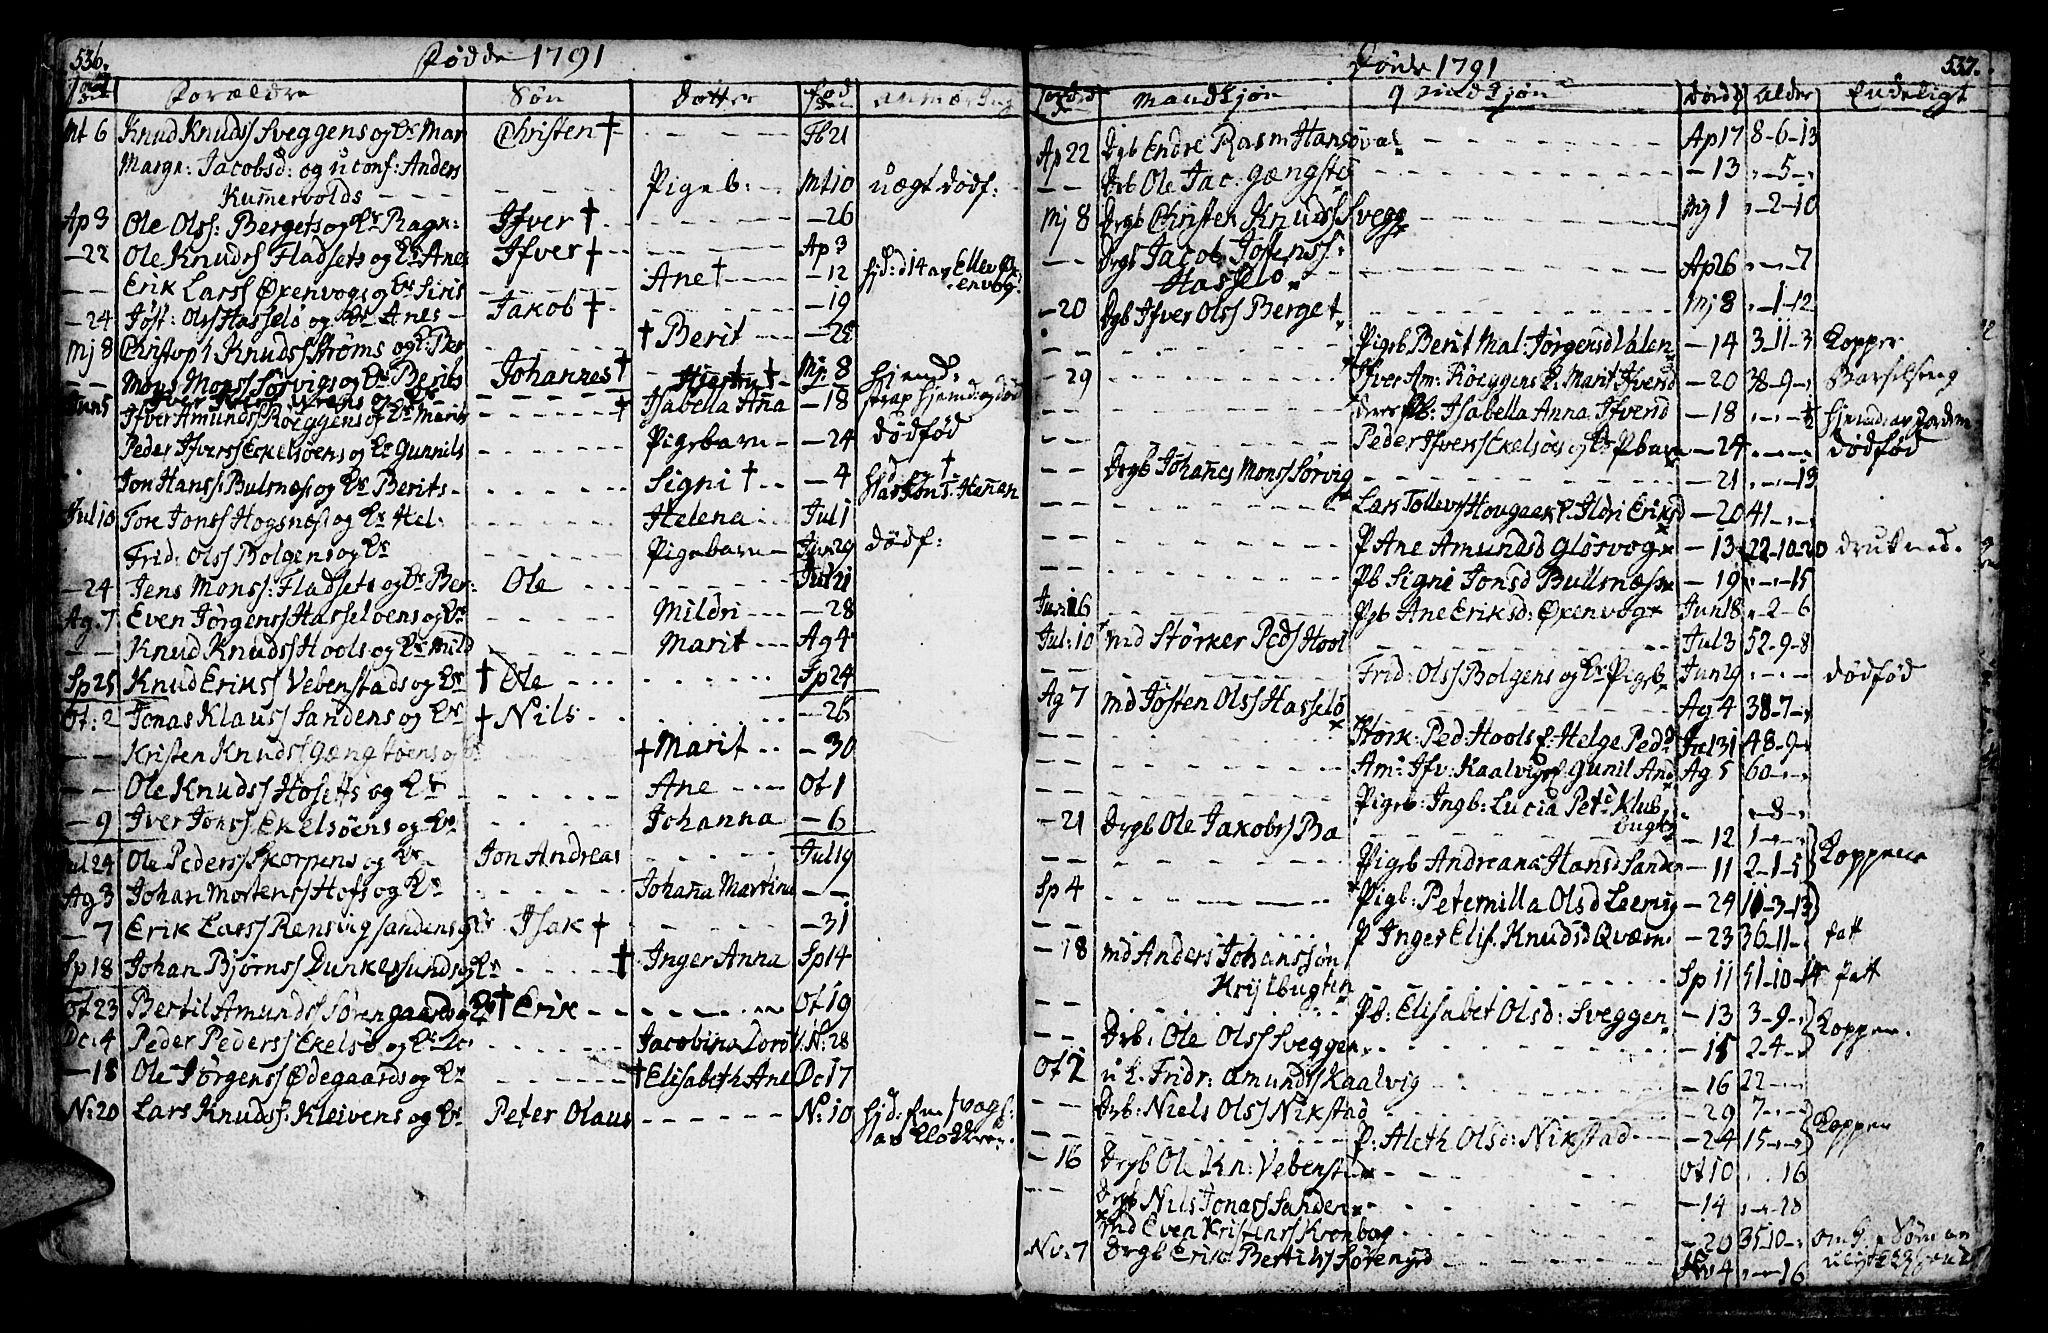 536. Fødde 1791
Forældre Søn Dotter Fød Anmærkning
Mt 6 Knud Knudss Sveggens og Hr Mar Christen † Fb 21
Marge: Jacobsd: og u conf: Anders
Kumervolds Pigeb: Mt 10 uægt dødf:
Ap 3 Ole Olss: Bergets og Hr Ragn: Ifver † - 26
- 22 Ole Knudss Fladsets og Hr Anes Ifver † Ap 3
- - Erik Larss Øxenvogs og Hr Siris Ane † - 12 hjd: d 14 av Ellev Øx
envog.
- 24 Jøst: Olss Hasselø og Hr Anes Jakob † - 19
Mj 8 Christop 1 Knudss Strøms og Hr Ber † Berit - 25
- - Mons Monss Sørvigs og Hr Berits Johannes † Mj 8 hjemd:
Jun 5 Ifver Amundss Røeggens og Hr Marits † Isabella Aña - 18
Peder Ifverss Ekelsøens og Hr Gunnils Pigebarn - 24 dødfød
Jon Hanss Bulsnæs og Hr Berits Signi † - 4
Jul 10 Tore Jonss Hogsnæs og Hr Hel: Helena Jul 1
Frid: Olss Bolgens og Hr Pigebarn Jun 29 dødf:
- 24 Jens Monss: Fladsets og Hr Ber: Ole Jul 21
Ag. 7 Even Jørgenss Hasseløens og Hr Mildri - 28
- - Knud Knudss Hools og Hr Mild Marit Ag 4
Sp 25 Knud Erikss Vebenstads og Hr † Ole Sp 24
Ot: 2 Jonas Klauss Sandens og Hr † Nils - 26
- - Kristen Knudss Gængstøens og Hr † Marit - 30
- - Ole Knudss Hosetts og Hr Ane Ot 1
- 9 Iver Jonss Ekelsøens og Hr Johanna - 6
Jul 24 Ole Pederss Skorpens og Hr Jon Andreas Jul 19
Ag 3 Johan Mortenss Hofs og Hr Johaña Martina - -
- 7 Erik Larss Rensvigsandens og Hr Isak † - 31
Sp 18 Johan Bjørnss Dunkersunds og Hr † Inger Anna Sp 14
Ot 23 Bertil Amundss Sørengaards og Hr † Erik Ot 19
Dc. 4 Peder Pederss Ekelsø og Hr Jacobina Dorot N: 28
- 18 Ole Jørgenss Ødegaards og Hr † Elisabeth Ane Dc 17
N: 20 Lars Knudss: Kleivens og Hr Peter Olaus N: 10
av Klokkeren.
Døde 1791 537.
Mandkjøn Qvindekjøn Dødd Alder Endeligt
Ap 22 Drb Endre Rasm Hansøvas Ap 17 8-6-13
- - Drb Ole Jac: Gængstø - 13 „-5-„
Mj 8 Drgb Christen Knudss Svegg Mj 1 „-2-10
- - Drgb Jacob Jostenss:
Hasselø Ap 26 „-„-7
- 20 Dgb Ifver Olss Berget Mj 8 „-1-12
- - Pigeb Berit Mal: Jørgensd Valen - 14 3-11-3 Kopper
- 29 Ifver Am: Røeggens H: Marit Ifversd - 20 38-9-„ Barselseng
- - Pb: Isabella Anna Ifversd - 18
- - Peder Ifverss Ekelsøes og Hr Pbarn - 24 dødfød
- - Drgb Johañes Monss Sørvig - 21 „-„-13
Lars Tollevss Hovgaar H. Ildri Eriksd - 20 41-„-„
P Ane Amundsd Gløsvog - 13 22-10-20 drukned.
Pb Signi Jonsd Bullsnæs - 19 „-„-15
Juni 16 Pgb Ane Eriksd: Øxenvog Jun 18 „-2-6
Jul: 10 md Størker Peds Hool Jul 3 52-9-8
- - Frid: Olss Bolgens og Hr Pigeb Jun 29 dødfød
Ag 7 md Jøsten Olss Hasselø Ag 4 38-7-„
Størk: Ped: Hools H: Helge Pedd Jul 31 48-9-„
Am: Ifv: Kaalvigs H. Gunil And Ag 5 60-„-„
Pigeb: Ingb: Lucia Petd Klub
bugt „-8-„
- 21 Drgb Ole Jakobss Ba - 12 1-„-„
- - Pigeb Andreana Hansd Sand - 11 2-1-5 Koppene
Sp 4 Pigb: Peternilla Olsd Leervig - 24 11-3-13
- - P Inger Elis. Knudsd Qværn - 23 36-11-„ Fatt
- 18 md Anders Johanssøn
Krylbugten Sp 11 51-10-14 Fatt
- - Pb: Elisabet Olsd: Sveggen - 13 3-9-„ Kopper.
- - Drb: Ole Olss Sveggen - 15 2-4-„
Ot 2 u k. Fridr: Amundss Kaalvig - 16 22-„-„
- - Drb: Niels Olss Nikstad - 29 7-„-„ Kopper
P: Aleth Olsd: Nikstad - 24 15-„-„
- 16 Drgb Ole Kn: Vebenstad Ot 10 „ „ 16
- - Drgb Nils Jonass Sanden - 14 „-„-18
md Even Kristenss Kronbog - 20 35 10-„
Nv: 7 Drgb Erik Bertilss Sørengrd Nv 4 „-„-16